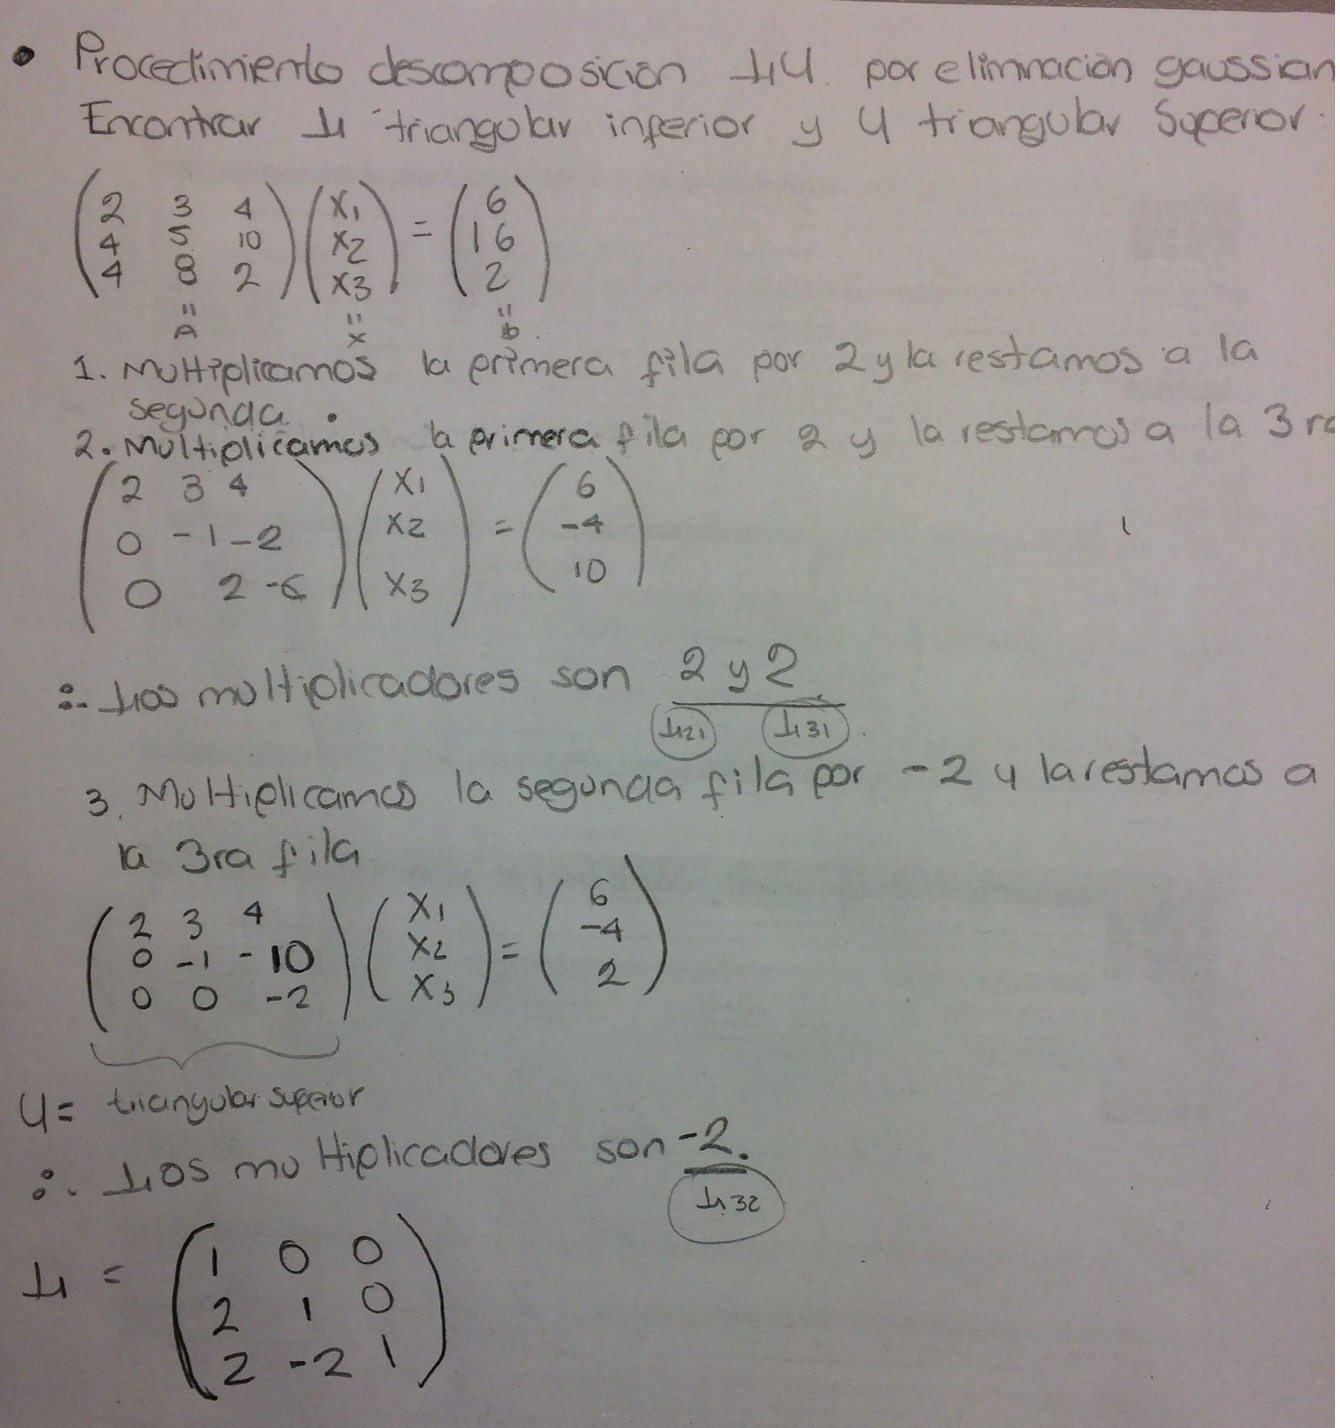 • Procedimiento descomposición LU por eliminación gaussian
Encontrar L triangular inferior y U triangular Superior.
( 2 3 4 ) ( x1 ) = ( 6 )
( 4 5 10 ) ( x2 ) ( 16 )
( 4 8 2 ) ( x3 ) ( 2 )
" " "
A x b
1. Multiplicamos la primera fila por 2 y la restamos a la
segunda.
2. Multiplicamos la primera fila por 2 y la restamos a la 3ra
( 2 3 4 ) ( x1 ) = ( 6 )
( 0 -1 -2 ) ( x2 ) ( -4 )
( 0 2 -6 ) ( x3 ) ( 10 )
∴ Los multiplicadores son 2 y 2
L21 L31
3. Multiplicamos la segunda fila por -2 y la restamos a
la 3ra fila
( 2 3 4 ) ( x1 ) = ( 6 )
( 0 -1 -10 ) ( x2 ) ( -4 )
( 0 0 -2 ) ( x3 ) ( 2 )
U = triangular superior
∴ Los multiplicadores son -2.
L32
L = ( 1 0 0 )
( 2 1 0 )
( 2 -2 1 )